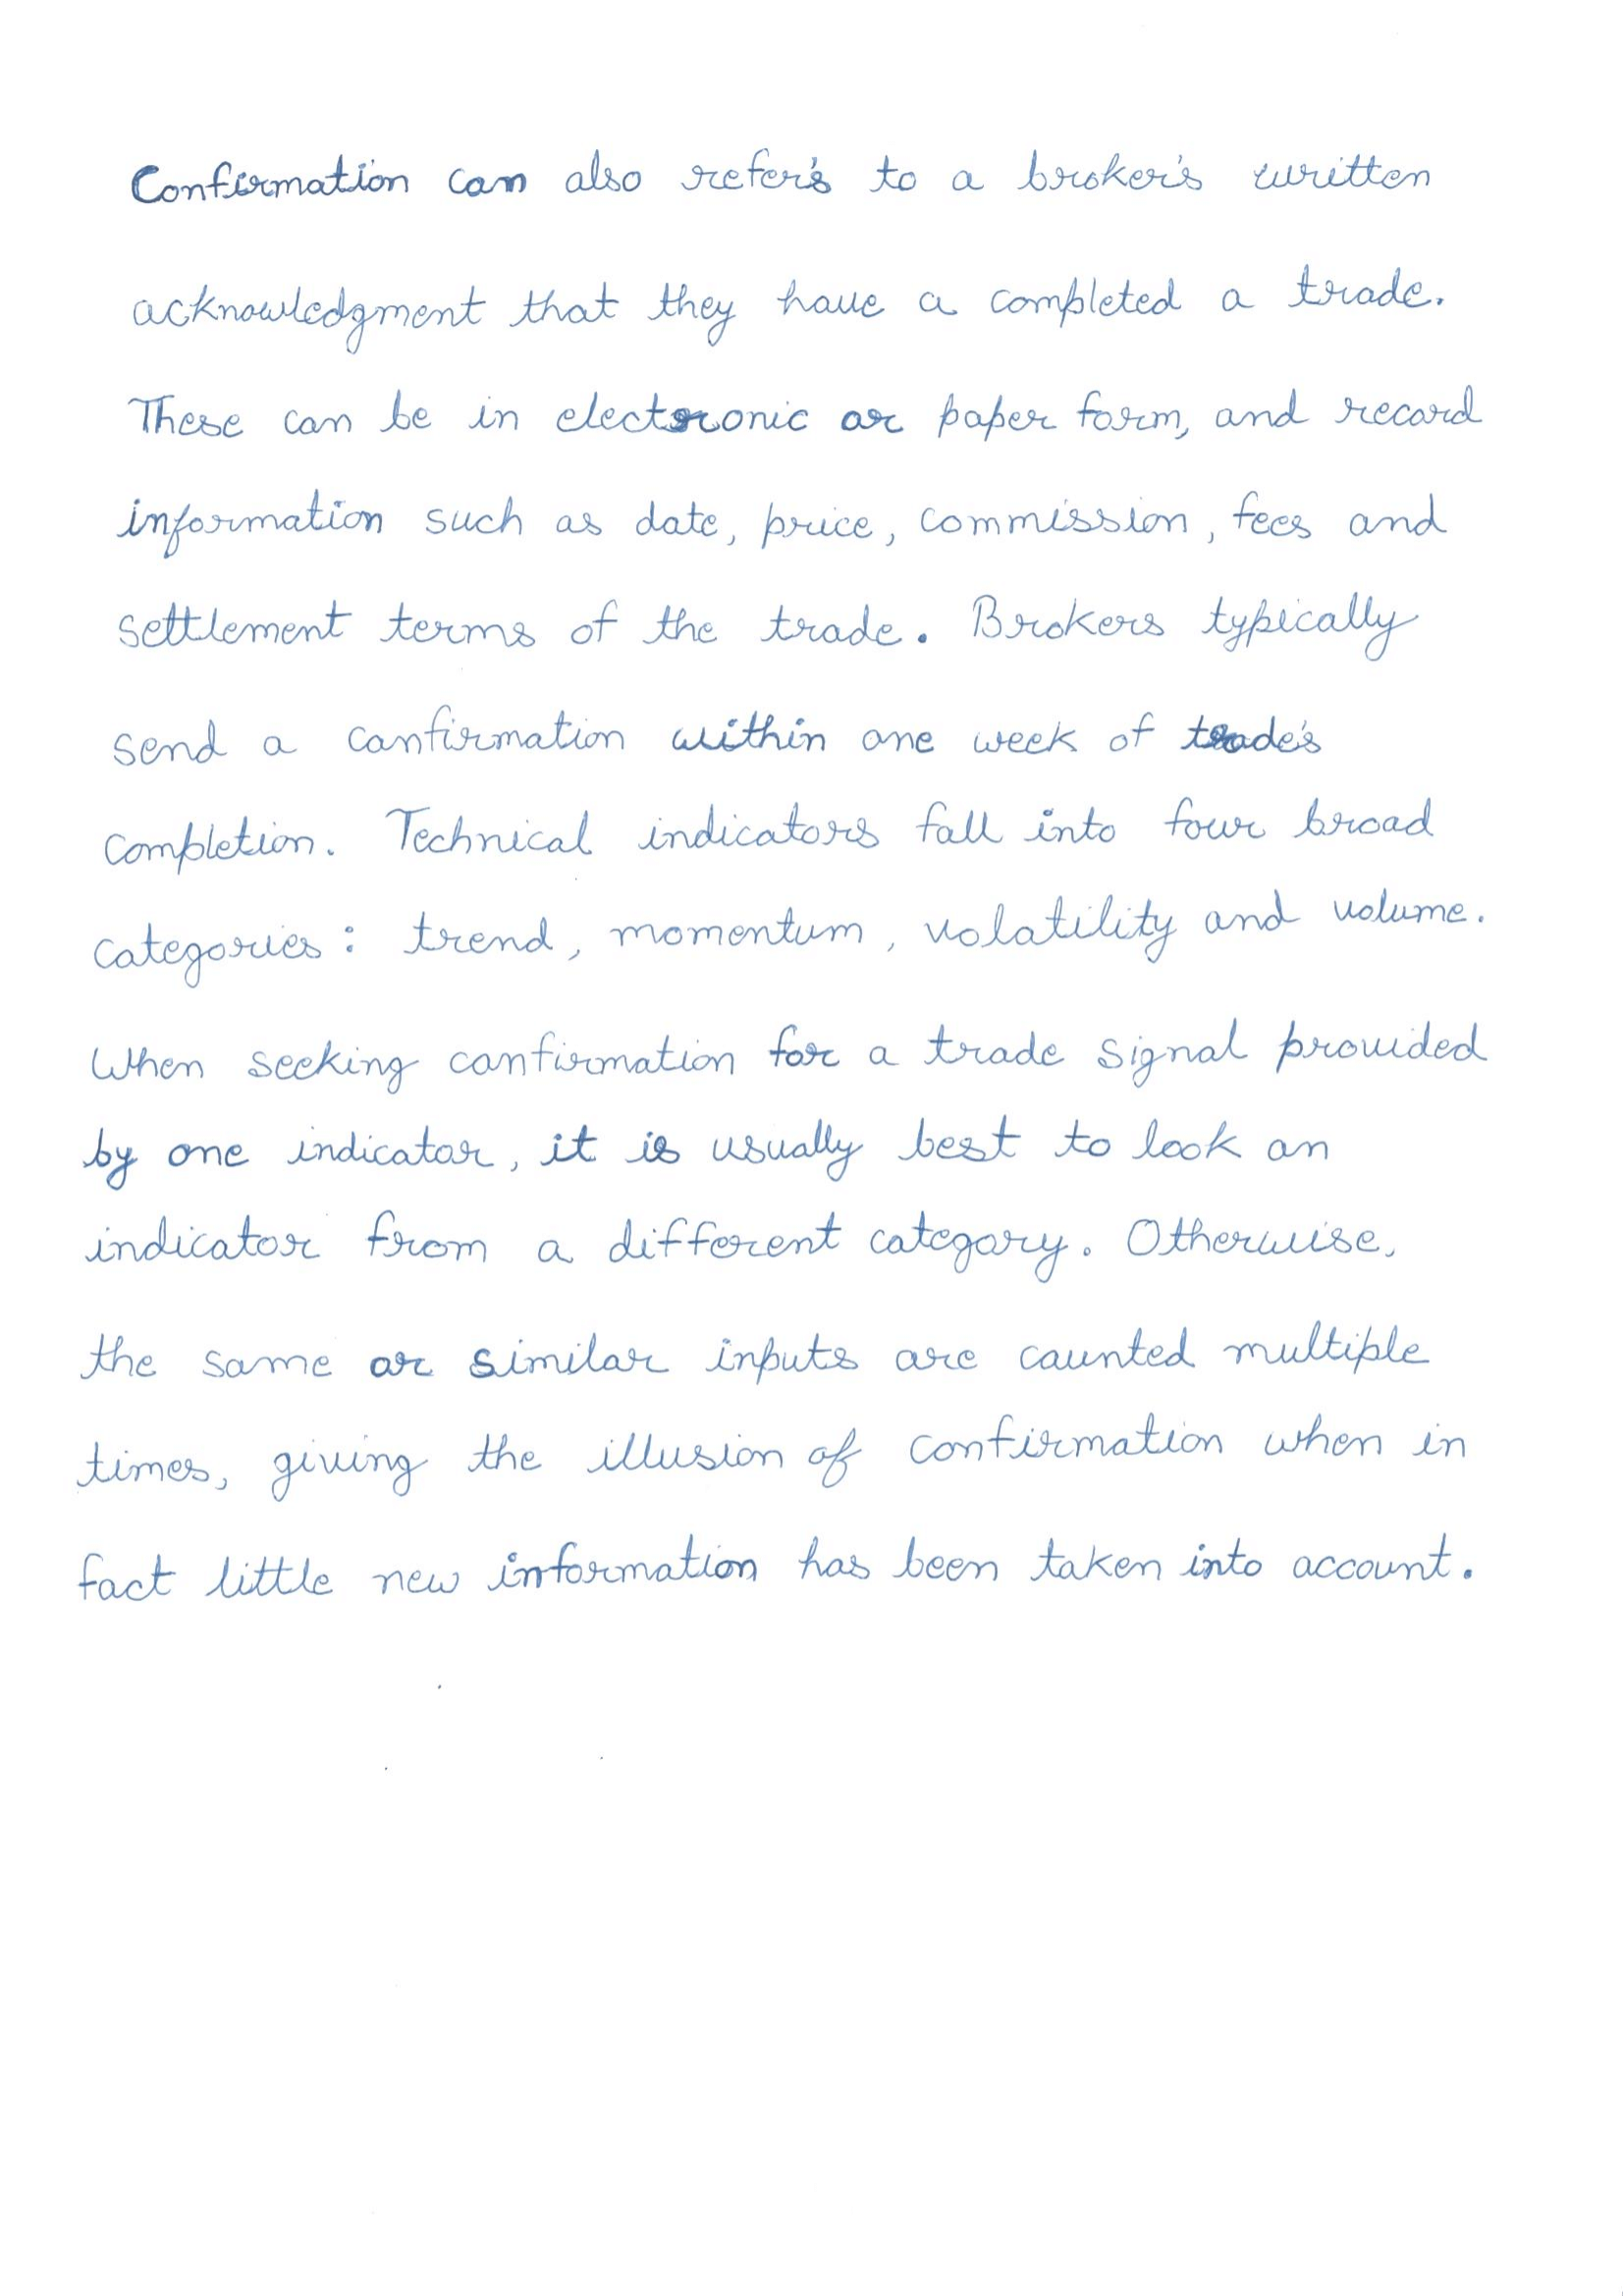 Confirmation can also refer's to a broker's written
acknowledgment that they have a completed a trade.
These can be in electronic or paper form, and record
information such as date, price, commission, fees and
settlement terms of the trade. Brokers typically
send a confirmation within one week of trade's
completion. Technical indicators fall into four broad
categories: trend, momentum, volatility and volume.
When seeking confirmation for a trade signal provided
by one indicator, it is usually best to look an
indicator from a different category. Otherwise,
the same or similar inputs are counted multiple
times, giving the illusion of confirmation when in
fact little new information has been taken into account.